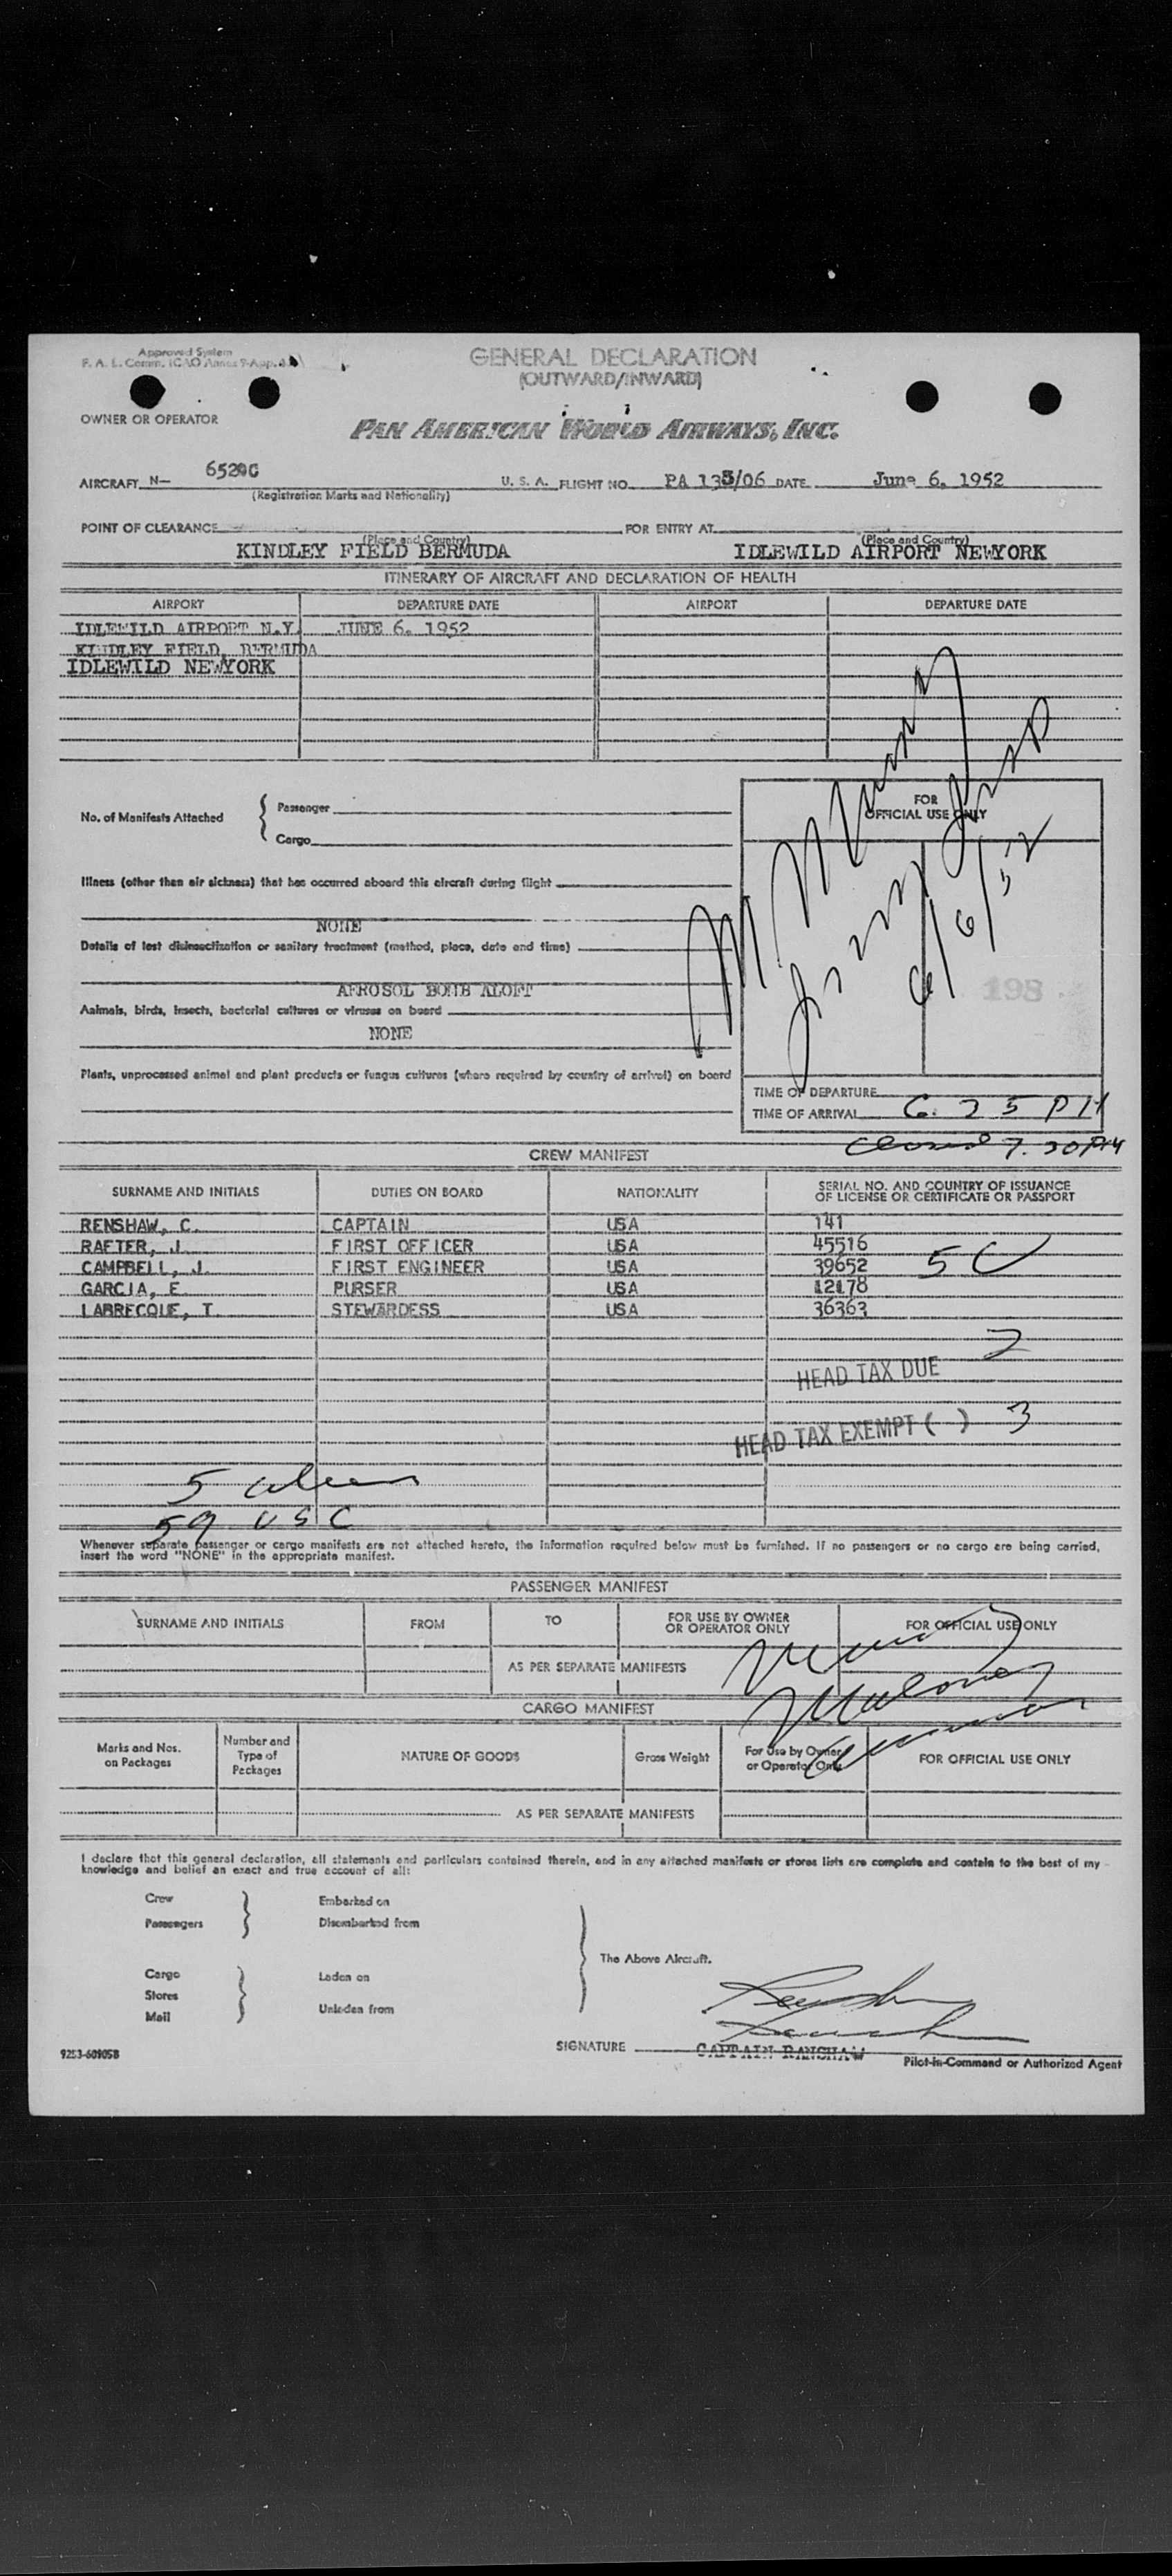 Approved System
F. A. L. Comm. ICAO Annex 9-App.
GENERAL DECLARATION
(OUTWARD/INWARD)
OWNER OR OPERATOR
PAN AMERICAN WORLD AIRWAYS, INC.
AIRCRAFT N— U. S. A. FLIGHT NO. PA 133/06 DATE June 6, 1952
(Registration Marks and Nationality)
POINT OF CLEARANCE FOR ENTRY AT
(Place and Country) (Place and Country)
KINDLEY FIELD BERMUDA IDLEWILD AIRPORT NEWYORK
ITINERARY OF AIRCRAFT AND DECLARATION OF HEALTH
AIRPORT DEPARTURE DATE AIRPORT DEPARTURE DATE
IDLEWILD AIRPORT N.Y. JUNE 6, 1952
KINDLEY FIELD, BERMUDA
IDLEWILD NEWYORK
No. of Manifests Attached { Passenger
Cargo
FOR
OFFICIAL USE ONLY
6/6/52
Illness (other than air sickness) that has occurred aboard this aircraft during flight
NONE
Details of last disinsectization or sanitary treatment (method, place, date and time)
198
AEROSOL BOMB ALOFT
Animals, birds, insects, bacterial cultures or viruses on board
NONE
Plants, unprocessed animal and plant products or fungus cultures (where required by country of arrival) on board
TIME OF DEPARTURE
TIME OF ARRIVAL 6.25 PM
Closed 7.30 PM
CREW MANIFEST
SURNAME AND INITIALS DUTIES ON BOARD NATIONALITY SERIAL NO. AND COUNTRY OF ISSUANCE
OF LICENSE OR CERTIFICATE OR PASSPORT
RENSHAW, C. CAPTAIN USA 141
RAFTER, J. FIRST OFFICER USA 45516
CAMPBELL, J. FIRST ENGINEER USA 39652 5 C
GARCIA, E. PURSER USA 12178
LABRECQUE, T. STEWARDESS USA 36363
2
HEAD TAX DUE
HEAD TAX EXEMPT ( ) 3
5 alien
59 USC
Whenever separate passenger or cargo manifests are not attached hereto, the information required below must be furnished. If no passengers or no cargo are being carried,
insert the word "NONE" in the appropriate manifest.
PASSENGER MANIFEST
SURNAME AND INITIALS FROM TO FOR USE BY OWNER
OR OPERATOR ONLY FOR OFFICIAL USE ONLY
AS PER SEPARATE MANIFESTS
CARGO MANIFEST
Marks and Nos.
on Packages Number and
Type of
Packages NATURE OF GOODS Gross Weight For Use by Owner
or Operator Only FOR OFFICIAL USE ONLY
AS PER SEPARATE MANIFESTS
I declare that this general declaration, all statements and particulars contained therein, and in any attached manifests or stores lists are complete and contain to the best of my
knowledge and belief an exact and true account of all:
Crew Embarked on
Passengers Disembarked from
The Above Aircraft.
Cargo Laden on
Stores
Mail Unladen from
SIGNATURE CAPTAIN RANSHAW Pilot-in-Command or Authorized Agent
9253-60905B